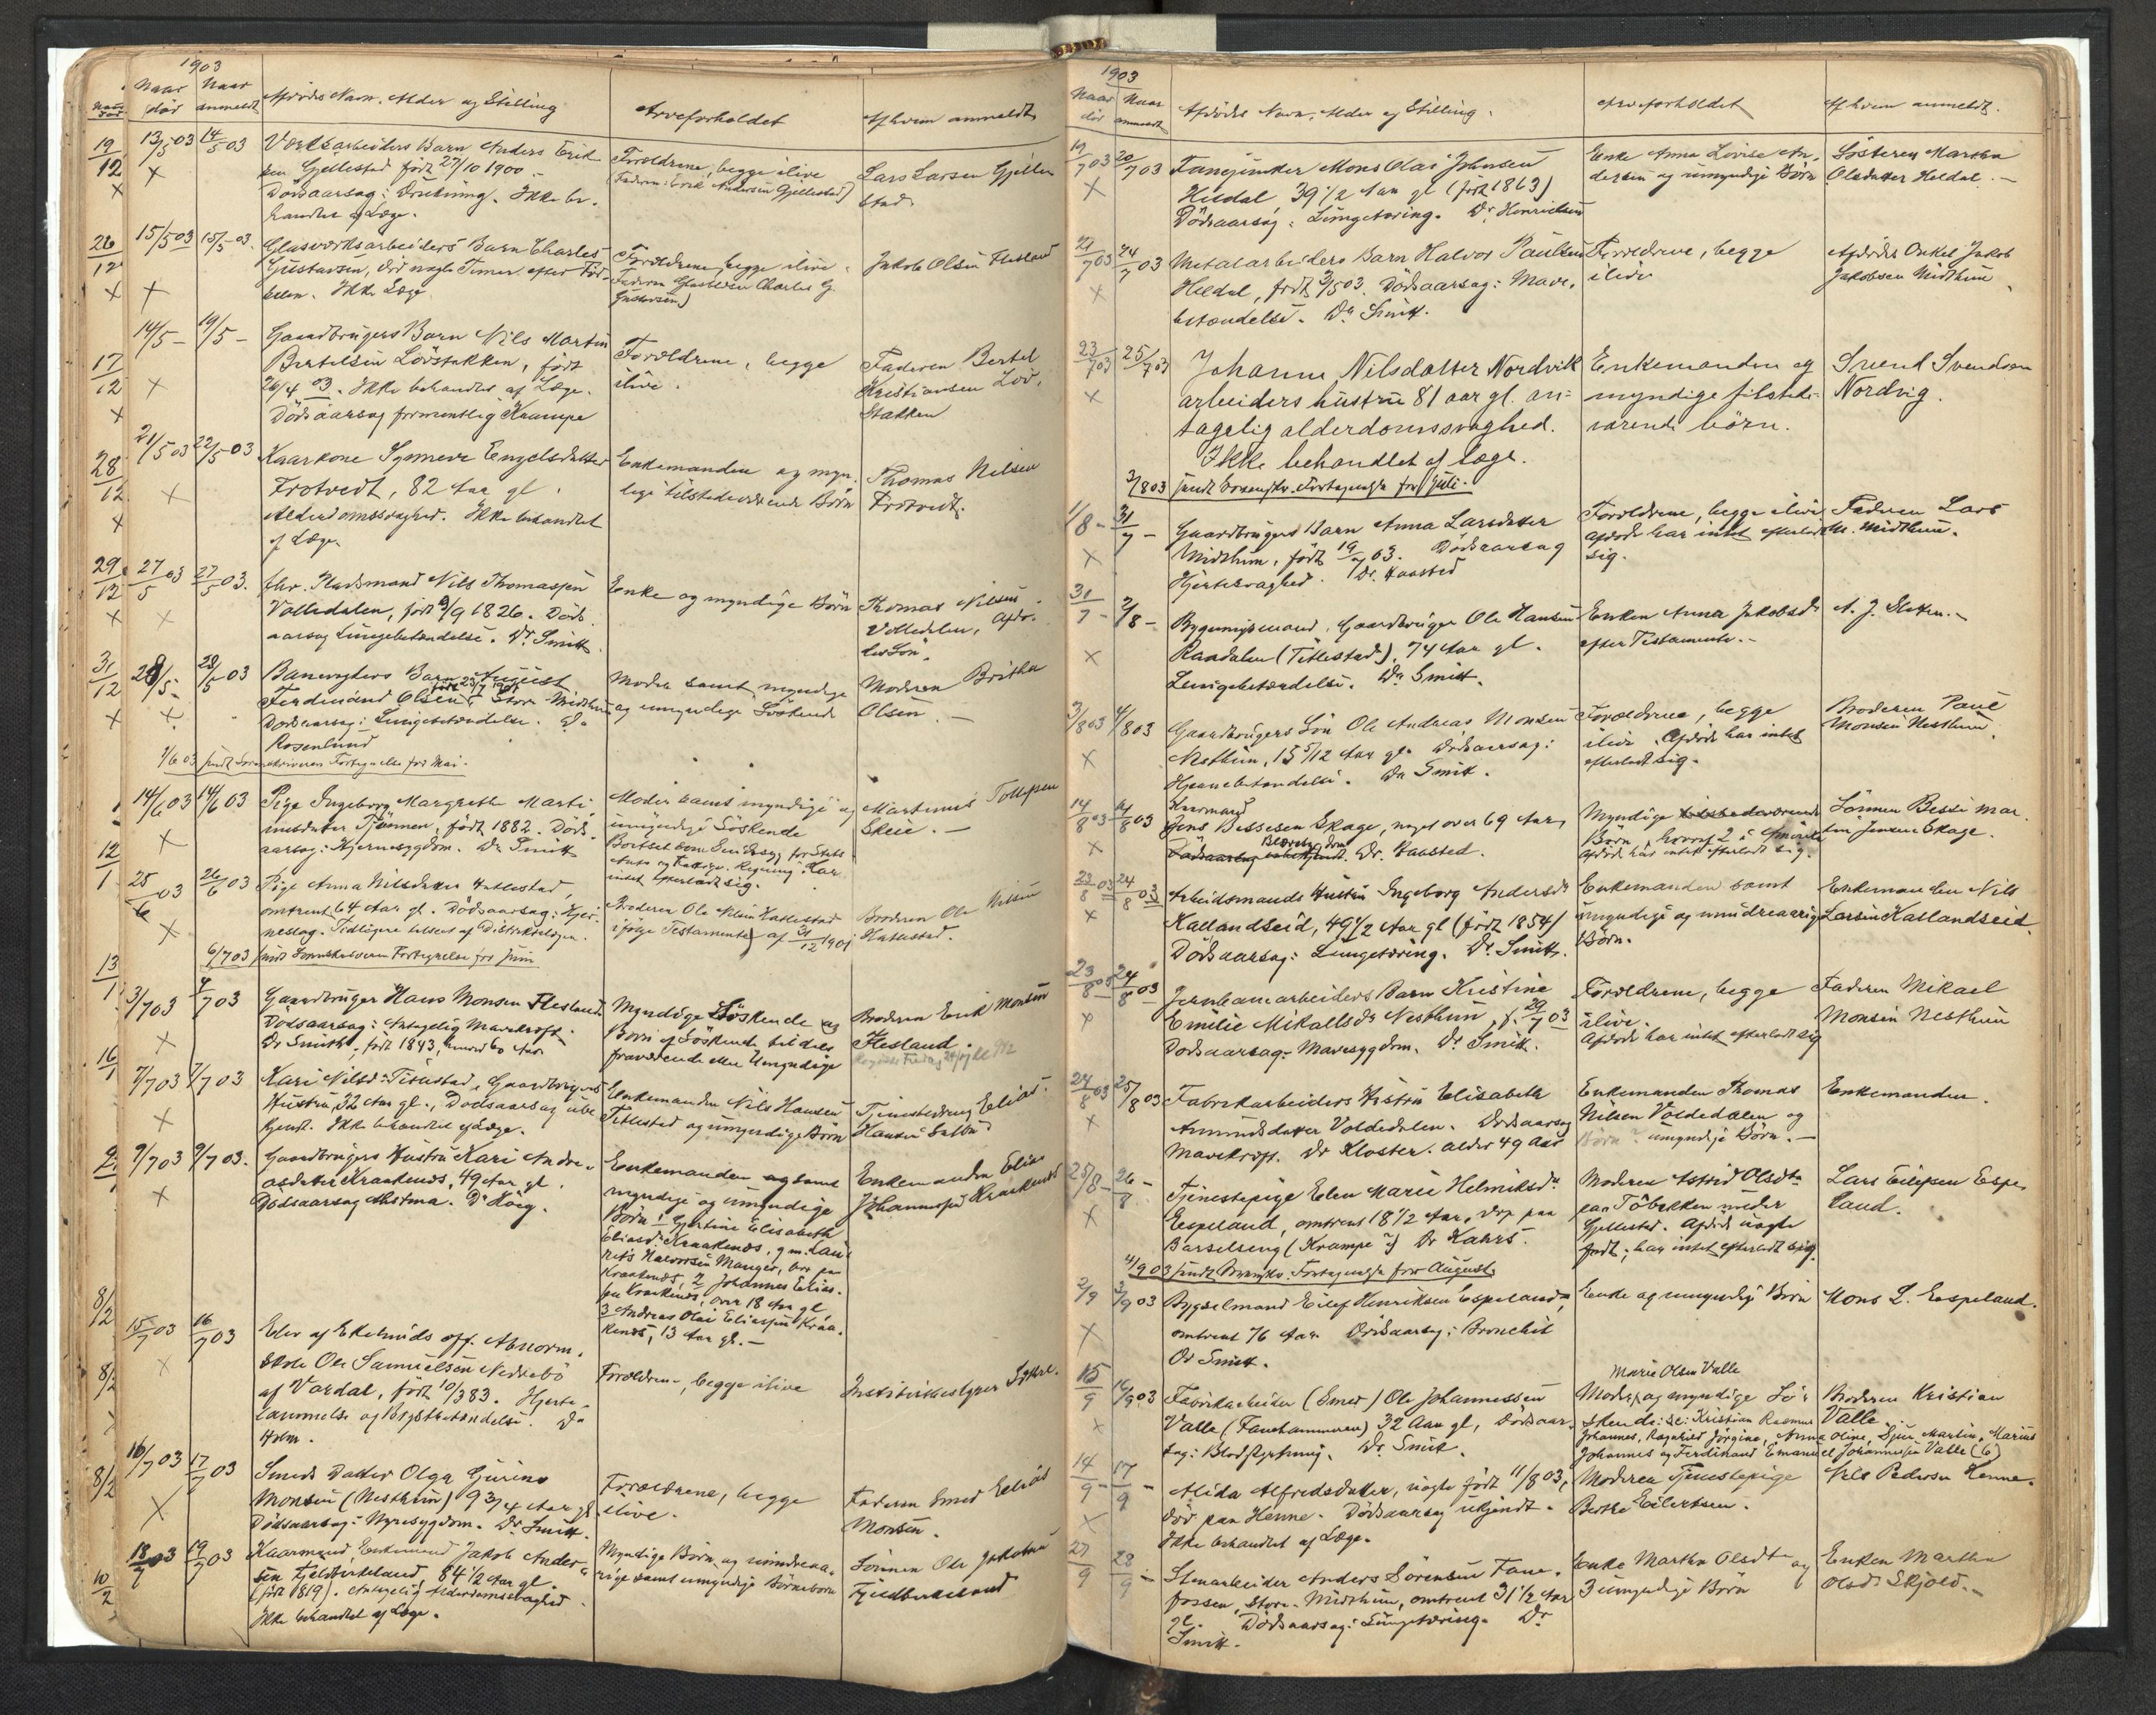 1903
Naar død
Naar anmeldt
Afdødes Navn, Alder og Stilling
Arveforholdet
Af hvem anmeldt
13/5 03 14/5 03
Barn Anders Erik-
sen Gjellestad født 27/10 1900
Dødsaarsag: Drukning. Ikke be-
handlet af Læge.
Forældrene, begge ilive
(Faderen: Erik Andersen Gjellestad)
Lars Larsen Gjelle
stad
15/5 03 15/5 03.
Glasværksarbeiders Barn Charles
Gustavsen, død nogle Timer efter Fød-
selen. Ikke Læge
Forældrene, begge ilive.
Jakob Olsen Flesland
14/5 - 19/5 -
Gaardbrugers Barn Nils Martin
Bertelsen Løvstakken, født
26/4 03. Ikke behandlet af Læge.
Dødsaarsag formentlig Krampe
Forældrene, begge
ilive.
Faderen Bertel
Kristiansen Løv-
stakken
21/5 03 22/5 03
Kaarkone Synneve Engelsdatter
Trotvedt, 82 Aar gl.
Alderdomssvaghed. Ikke behandlet
af Læge
Enkemanden og myn-
dige tilstedeværende Børn
Thomas Nilsen
Trotvedt.
27/5 03 27/5 03.
fhv. Pladsmand Nils Thomassen
Volledalen, født 9/9 1826. Døds-
aarsag Lungebetændelse. Dr Smitt
Enke og myndige Børn
Thomas Nilsen
Volledalen, Afdø-
des Søn.
28/5 - 28/5 03
Banevogters Barn August
Ferdinand Olsen, Store Midthun
Dødsaarsag: Lungebetændelse. Dr
Rosenlund
Moder samt myndige
og umyndige Søskende
Moderen Britha
Olsen. -
1/6 03 sendt Sorenskriveren Fortegnelse for Mai.
14/6 03 14/6 03
Pige Ingeborg Margrethe Marti-
nusdatter Tjønnen, født 1882. Døds-
aarsag: Hjernesygdom. Dr Smitt
Moder samt myndige og
umyndige Søskende
intet efterladt sig.
Martinus Tollefsen
Skeie. -
25/6 03 26/6 03
Pige Anna Nilsdatter Hatlestad,
omtrent 64 Aar gl. Dødsaarsag: Hjer-
neslag. Tidligere tilseet af Distriktslægen.
Broderen Ole Nilsen Hatlestad
ifølge Testamente af 31/12 1901
Broderen Ole Nilsen
Hatlestad.
6/7 03 sendt Sorenskriveren Fortegnelse for Juni
3/7 03 4/7 03
Gaardbruger Hans Monsen Flesland
Dødsaarsag: Antagelig Mavekræft.
Dr Smith, født 1843, 60 Aar
Myndige Søskende og
Børn af Søskende tildels
fraværende eller Umyndige
Broderen Erik Monsen
Flesland.
7/7 03 7/7 03
Kari Nilsd. Titlestad, Gaardbrugers
Hustru, 32 Aar gl., Dødsaarsag ube-
kjendt. Ikke behandlet af Læge.
Enkemanden Nils Hansen
Titlestad og umyndige Børn
Tjenestedreng Elias
Hansen
9/7 03 9/7 03.
Gaardbrugers Hustru Kari Andre-
asdatter Kraakenes, 49 Aar gl.
Dødsaarsag Asthma. Dr Høeg.
Enkemanden samt
myndige og umyndige
Børn: 1 Gjertine Elisabeth
Eliasd. Kraakenes, g. m. Lau-
rits Halvorsen Manger, bor paa
Kraakenes, 2 Johannes Elias-
sen Kraakenes, over 18 Aar gl,
3 Andreas Olai Eliassen Kraa-
kenes, 13 Aar gl. -
Enkemanden Elias
Johannessen Kraakenes
15/7 03 16/7 03
Elev af Ekelunds off. Abnorm-
skole Ole Samuelsen Nedrebø
af Vardal, født 10/3 83. Hjerte-
lammelse og Brystbetændelse. Dr
Holm.
Forældrene, begge ilive
Institutbestyrer
16/7 03 17/7 03
Smeds Datter Olga Gurine
Monsen (Nesthun) 9 3/4 Aar gl
Dødsaarsag: Nyresygdom. Dr. Smitt.
Forældrene, begge
ilive.
Faderen Smed Elias
Monsen.
18/7 03 19/7 03
Kaarmand, Enkemand Jakob Ander-
sen Fjeldbirkeland, 84 1/2 Aar gl.
(født 1819). Antagelig Alderdomssvaghed.
Ikke behandlet af Læge.
Myndige Børn og mindreaa-
rige samt umyndige Børnebørn
Sønnen Ole Jakobsen
Fjeldbirkeland
1903
Naar død
Naar anmeldt
Afdødes Navn, Alder og Stilling.
Arveforholdet
Af hvem anmeldt.
19/7 03 20/7 03
Mons Olai Johnsen
Heldal, 39 1/2 Aar gl (født 1863)
Dødsaarsag: Lungetæring. Dr. Henrichsen
Enke Anna Lovise An-
dersen og umyndige Børn
Søsteren Martha
Olsdatter Heldal. -
22/7 03 24/7 03
Metalarbeiders Barn Halvor Paulsen
Heldal, født 3/5 03. Dødsaarsag: Mave-
betændelse. Dr Smitt.
Forældrene, begge
ilive
Afdødes Onkel Jakob
Jakobsen Midthun
23/7 03 25/7 03
Johanne Nilsdatter Nordvik
arbeiders hustru 81 aar gl. an-
tagelig alderdomssvaghed.
Ikke behandlet af læge.
Enkemanden og
myndige tilstede-
værende børn.
Svend Svendsen
Nordvig.
3/8 03 sendt Sorenskr. Fortegnelse for Juli.
1/8 - 31/7 -
Gaardbrugers Barn Anna Larsdatter
Midthun, født 19/7 03. Dødsaarsag
Hjertesvaghed. Dr. Kaasted
Forældrene, begge ilive
Afdøde har intet efterladt
sig.
Faderen Lars
M. Midthun.
31/7 - 2/8 -
Bygningsmand, Gaardbruger Ole Hansen
Raadalen (Titlestad), 74 Aar gl.
Lungebetændelse. Dr Smitt.
Enken Anna Jakobsdr
efter Testamente. -
A. J. Sletten. -
3/8 03 4/8 03
Gaardbrugers Søn Ole Andreas Monsen
Nesthun, 15 5/12 Aar gl. Dødsaarsag:
Hjernebetændelse. Dr Smitt.
Forældrene, begge
ilive. Afdøde har intet
efterladt sig.
Broderen Paul
Monsen Nesthun.
14/8 03 14/8 03
Kaarmand
Jens Bessesen Skage, noget over 69 Aar,
Blæresygdom
Dr. Kaasted.
Myndige tilstedeværende
Børn, hvoraf 2 i Amerika
Afdøde har intet efterladt sig.
Sønnen Besse Mar-
tin Jensen Skage.
23/8 03 24/8 03
Arbeidsmands Hustru Ingeborg Andersdr
Kallandseid, 49 1/2 Aar gl (født 1854)
Dødsaarsag: Lungetæring. Dr. Smitt.
Enkemanden samt
umyndige og mindreaarige
Børn.
Enkemanden Nils
Larsen Kallandseid
23/8 03 24/8 03
Jernbanearbeiders Barn Kristine
Emilie Mikallsdr Nesthun, f. 29/7 03
Dødsaarsag: Mavesygdom. Dr Smitt.
Forældrene, begge
ilive.
Afdøde har intet efterladt sig
Faderen Mikael
Monsen Nesthun
24/8 03 25/8 03
Fabrikarbeiders Hustru Elisabeth
Amundsdatter Volledalen. Dødsaarsag
Mavekræft. Dr Kloster. alder 49 Aar
Enkemanden Thomas
Nilsen Volledalen og
umyndige Børn. -
Enkemanden.
25/8 - 26/8 -
Tjenestepige Elen Marie Helmiksdr
Espeland, omtrent 18 1/2 Aar, død paa
Barselseng (Krampe?) Dr Kahrs.
Moderen Astrid Olsdtr
paa Tøbekken under
Gjellestad. Afdøde uægte
født, har intet efterladt sig.
Lars Eilefsen Espe-
land.
4/9 03 sendt Sorenskr. Fortegnelse for August.
2/9 3/9 03
Bygselmand Eilef Henriksen Espeland,
omtrent 76 Aar. Dødsaarsag: Bronchit
Dr Smitt.
Enke og umyndige Børn
Mons L. Espeland.
15/9 16/9 03
Fabrikarbeider (Smed) Ole Johannessen
Valle (Fanehammeren) 32 Aar gl, Dødsaar-
sag: Blodstyrtning. Dr. Smitt.
Marie Olsen Valle
Moder og myndige Sø-
skende: Kristian Rasmus
Johannes, Ragnhild Jørgine, Anna Oline, Sjur Martin, Marius
Johannes og Ferdinand Emanuel Johannessen Valle (6)
Broderen Kristian
Valle
14/9 - 17/9 -
Alida Alfredsdatter, uægte født 11/8 03,
død paa Henne. Dødsaarsag ukjendt.
Ikke behandlet af Læge.
Moderen Tjenestepige
Berthe Eilertsen.
Nils Pedersen Henne.
27/9 28/9 -
Stenarbeider Anders Sørensen Fane-
fossen, Store-Midthun, omtrent 31 1/2 Aar
gl. Dødsaarsag: Lungetæring. Dr
Smitt.
Enke Martha Olsdtr og
3 umyndige Børn
Enken Martha
Olsdr Skjold. -